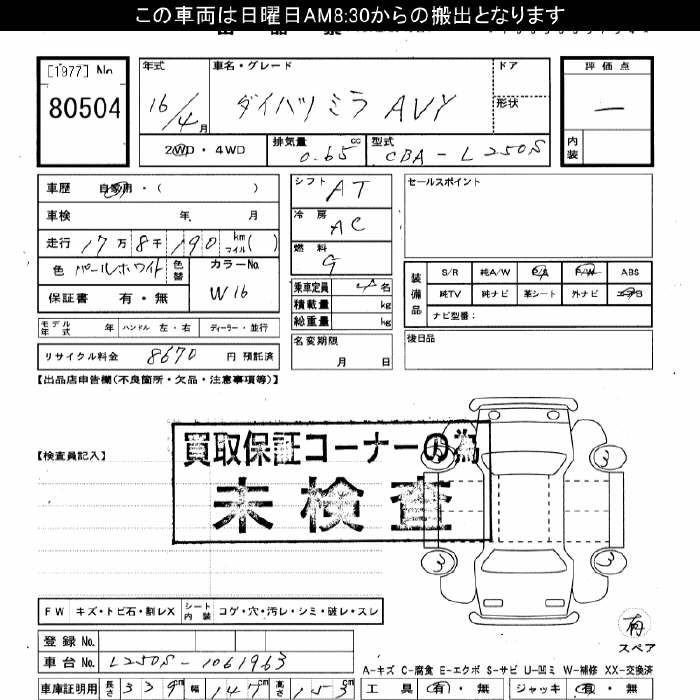 この車両は日曜日AM8:30からの搬出となります
[1977] No
80504
年式
16/4月
車名・グレード
ダイハツ ミラ AVY
ドア
形状
評価点
―
内装
2WD・4WD
排気量 0.65 cc
型式 CBA-L250S
車歴 自家用・( )
車検 年 月
走行 17万8千190 km マイル( )
色 パールホワイト 色替
カラーNo. W16
保証書 有・無
シフト AT
冷房 AC
燃料 G
乗車定員 4名
積載量 kg
総重量 kg
セールスポイント
装備品 S/R 純A/W P/S P/W ABS
純TV 純ナビ 革シート 外ナビ エアB
ナビ型番:
モデル年式 年 ハンドル 左・右 ディーラー・並行
リサイクル料金 8670 円 預託済
名変期限
月 日
後日品
【出品店申告欄(不良箇所・欠品・注意事項等)】
【検査員記入】
買取保証コーナーの為
未検査
3
3
3
3
FW キズ・トビ石・割レX シート内装 コゲ・穴・汚レ・シミ・破レ・スレ
有
スペア
登録 No.
車台 No. L250S-1061963
A-キズ C-腐食 E-エクボ S-サビ U-凹ミ W-補修 XX-交換済
車庫証明用 長さ 339cm 幅 147cm 高さ 153cm
工具 有・無 ジャッキ 有・無